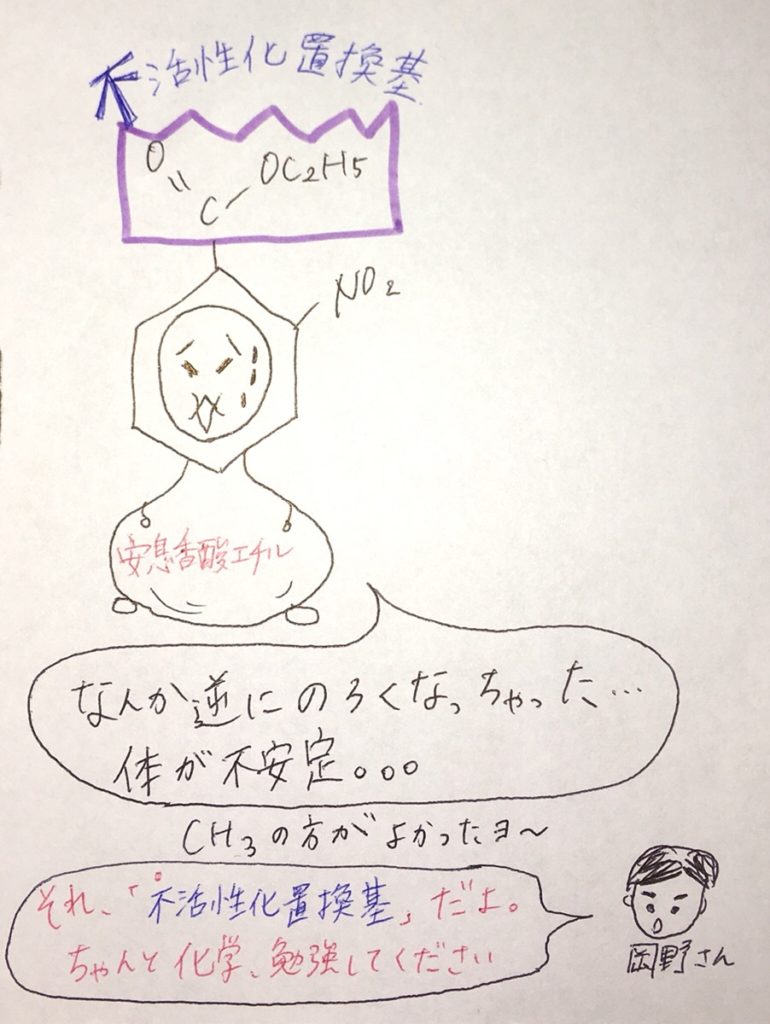 不活性化置換基
O
OC₂H₅
C
NO₂
安息香酸エチル
なんか逆にのろくなっちゃった…
体が不安定。。。
CH₃の方がよかったヨ〜
それ、「不活性化置換基」だよ。
ちゃんと化学、勉強してください
岡野さん